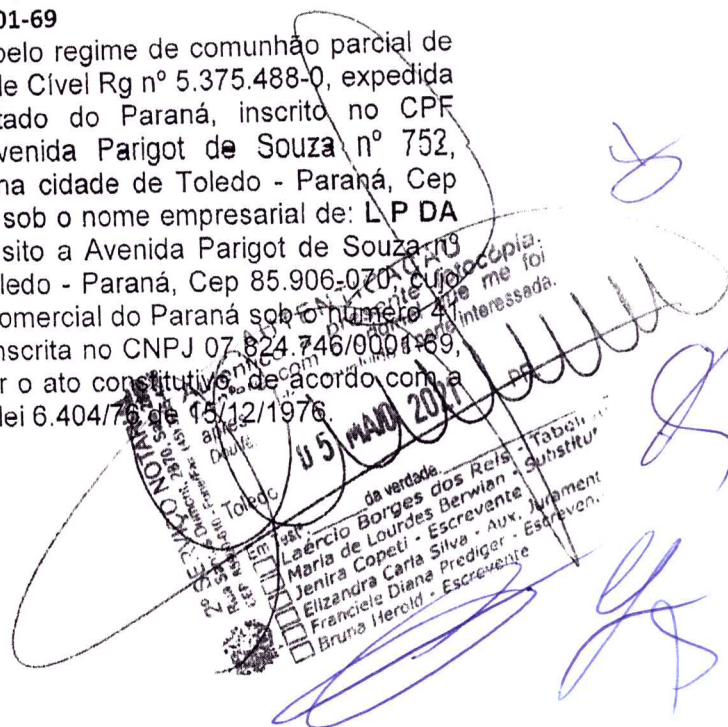 01-69
pelo regime de comunhão parcial de
de Cível Rg nº 5.375.488-0, expedida
tado do Paraná, inscrito no CPF
venida Parigot de Souza nº 752,
na cidade de Toledo - Paraná, Cep
sob o nome empresarial de: L P DA
sito a Avenida Parigot de Souza nº
ledo - Paraná, Cep 85.906-070, cujo
omercial do Paraná sob o numero 41
nscrita no CNPJ 07.824.746/0001-69,
r o ato constitutivo, de acordo com a
lei 6.404/76 de 15/12/1976.
AUTENTICAÇÃO
presente fotocópia
que me foi
parte interessada.
05 MAIO 2021 PR
Toledo
da verdade
Laércio Borges dos Reis - Tabeli
Maria de Lourdes Berwian - Substitu
Jenira Copeti - Escrevente
Elizandra Carla Silva - Aux. Jurament
Franciele Diana Prediger - Escreven
Bruna Herold - Escrevente
2º SERVIÇO NOTAR